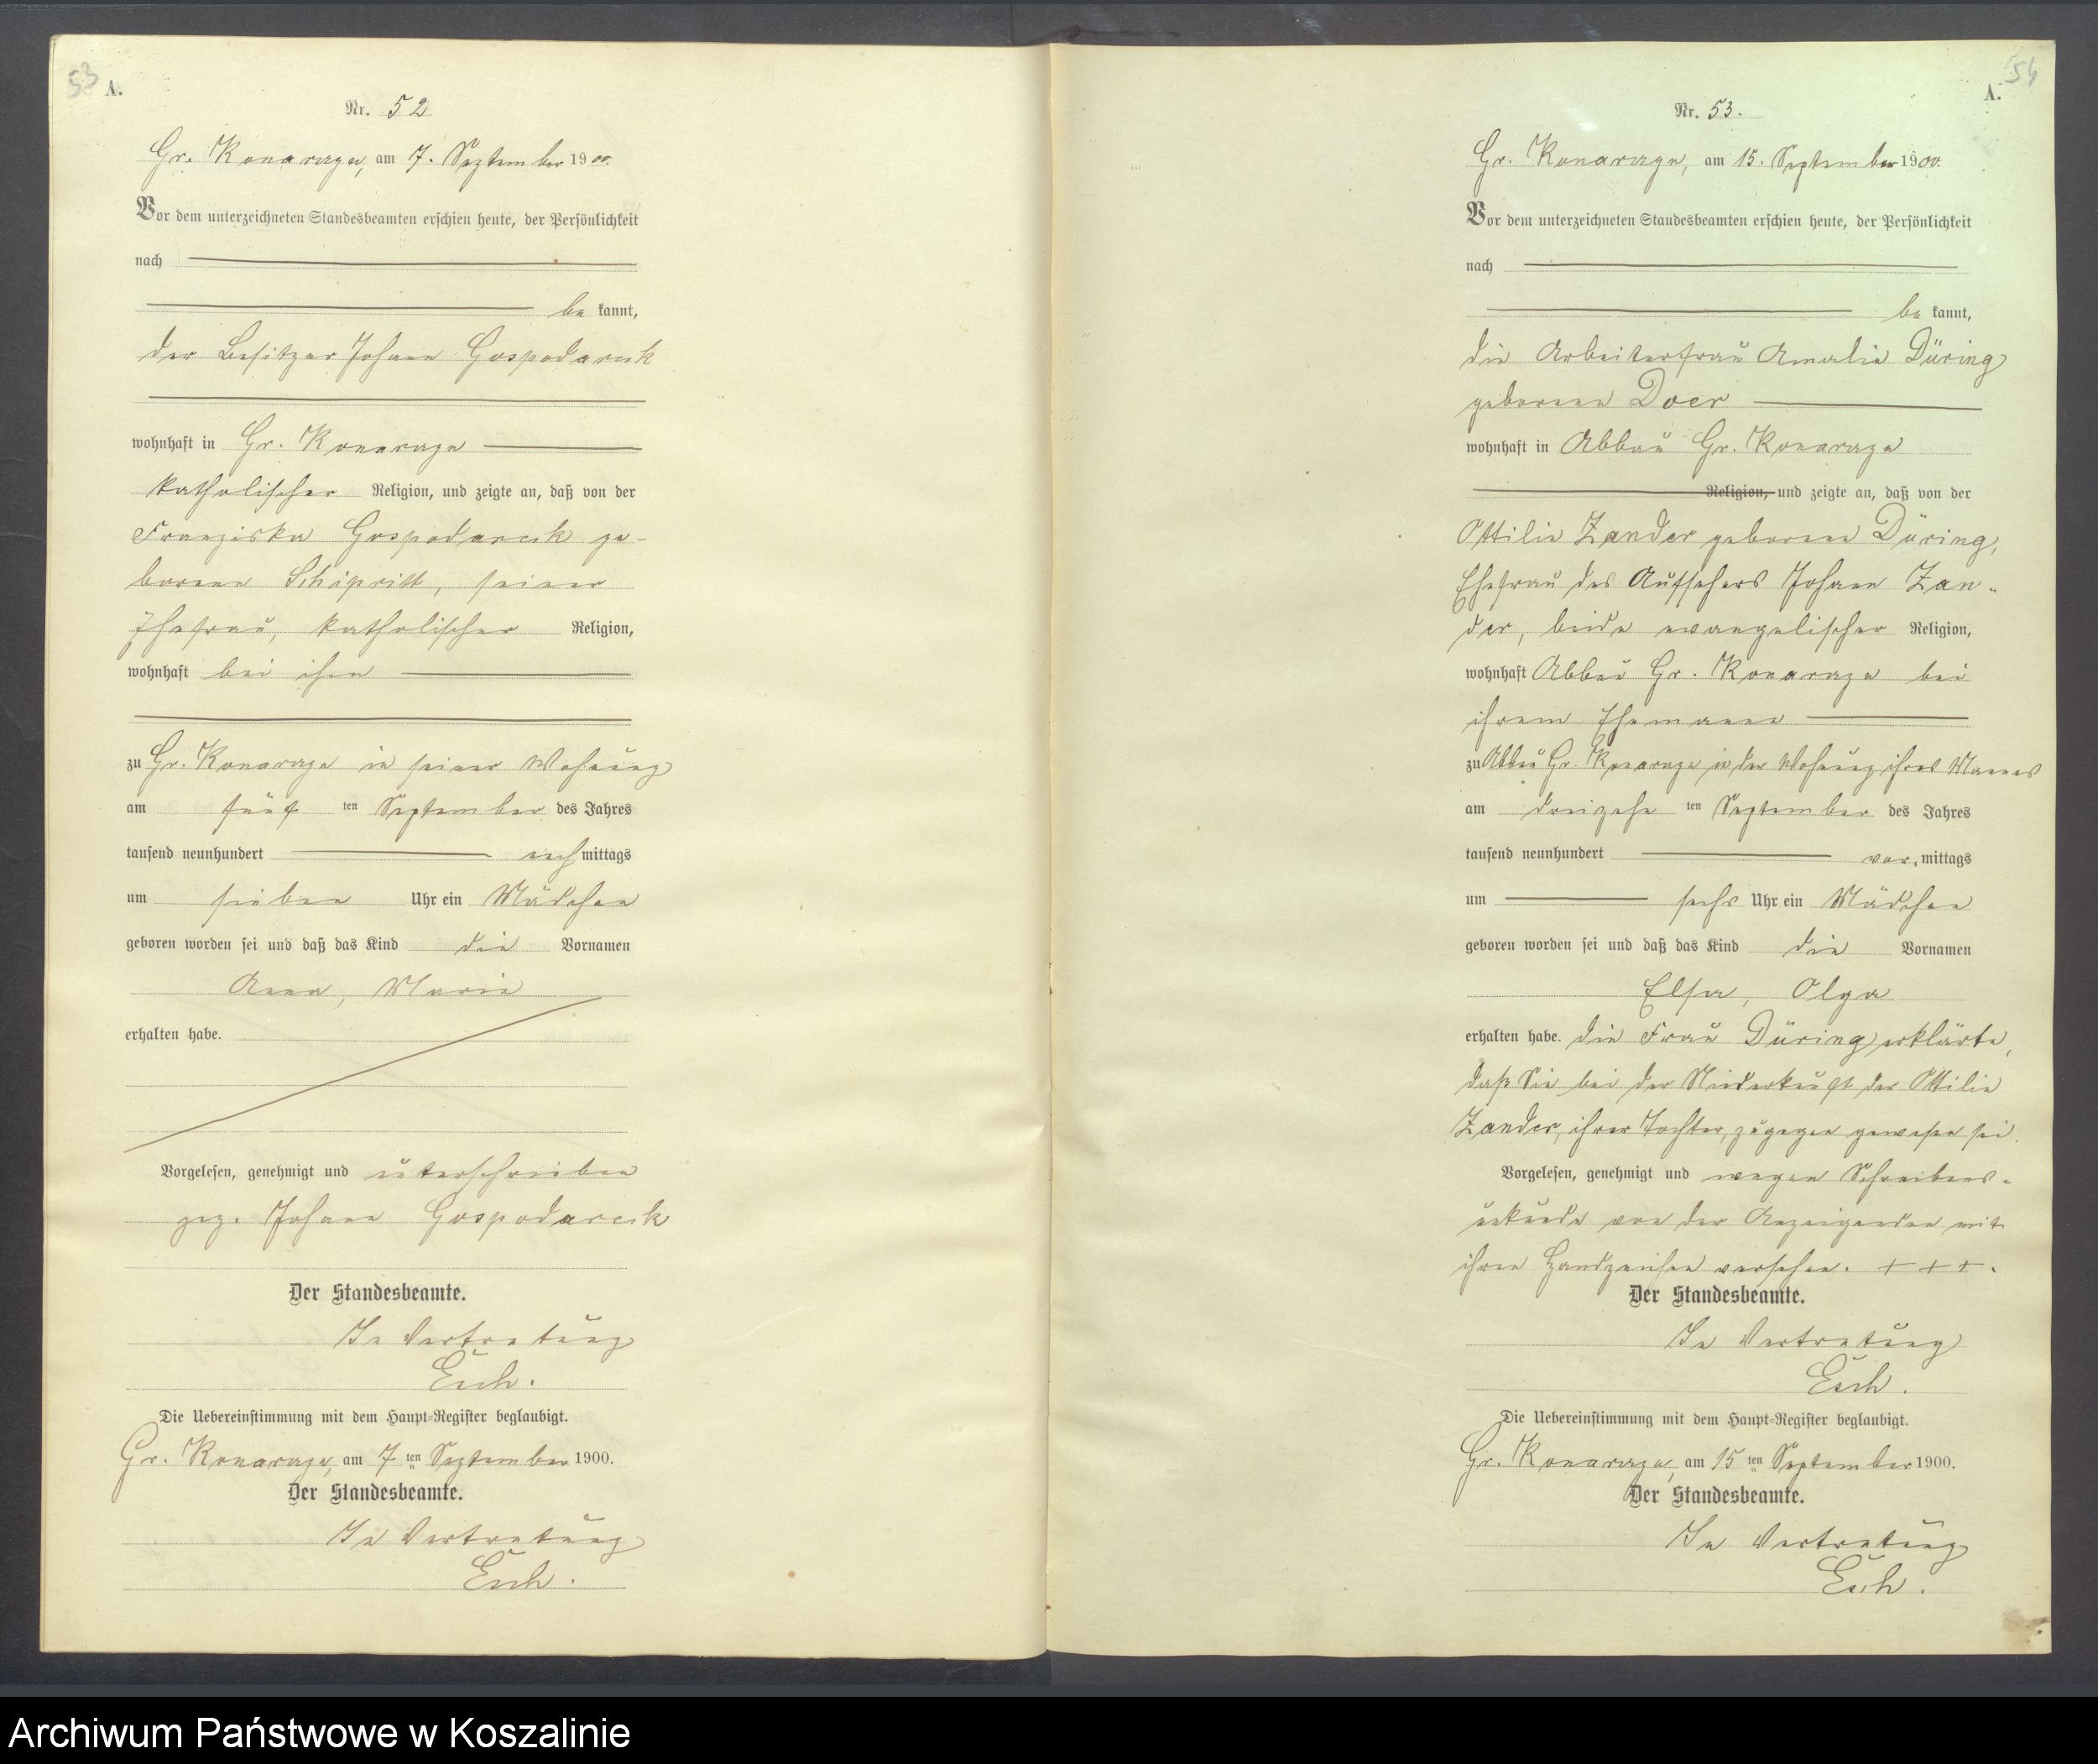 53
A.
Nr. 52
Gr. Konarzyn, am 7. September 1900.
Vor dem unterzeichneten Standesbeamten erschien heute, der Persönlichkeit
nach
be kannt,
der Besitzer Johann Gospodarek
wohnhaft in Gr. Konarzyn
katholischer Religion, und zeigte an, daß von der
Franziska Gospodarek ge-
borene , seiner
Ehefrau, katholischer Religion,
wohnhaft bei ihm
zu Gr. Konarzyn in seiner Wohnung
am fünf ten September des Jahres
tausend neunhundert nach mittags
um sieben Uhr ein Mädchen
geboren worden sei und daß das Kind die Vornamen
Anna, Marie
erhalten habe.
Vorgelesen, genehmigt und unterschrieben
gez. Johann Gospodarek
Der Standesbeamte.
In Vertretung
Esch.
Die Uebereinstimmung mit dem Haupt-Register beglaubigt.
Gr. Konarzyn, am 7 ten September 1900.
Der Standesbeamte.
In Vertretung
Esch.
54
A.
Nr. 53.
Gr. Konarzyn, am 15. September 1900.
Vor dem unterzeichneten Standesbeamten erschien heute, der Persönlichkeit
nach
be kannt,
die Arbeiterfrau Amalie Düring
geborene Doer
wohnhaft in Abbau Gr. Konarzyn
Religion, und zeigte an, daß von der
Ottilie Zander geborene Düring,
Ehefrau des Aufsehers Johann Zan-
der, beide evangelischer Religion,
wohnhaft Abbau Gr. Konarzyn bei
ihrem Ehemanne
zu Abbau Gr. Konarzyn in der Wohnung ihres Mannes
am dreizehn ten September des Jahres
tausend neunhundert vor mittags
um sechs Uhr ein Mädchen
geboren worden sei und daß das Kind die Vornamen
Elsa, Olga
erhalten habe. Die Frau Düring erklärte,
daß Sie bei der Niederkunft der Ottilie
Zander, ihrer Tochter, zugegen gewesen sei.
Vorgelesen, genehmigt und wegen Schreibens-
unkunde von der Anzeigenden mit
ihren Handzeichen versehen. + + +.
Der Standesbeamte.
In Vertretung
Esch.
Die Uebereinstimmung mit dem Haupt-Register beglaubigt.
Gr. Konarzyn, am 15 ten September 1900.
Der Standesbeamte.
In Vertretung
Esch.
Archiwum Państwowe w Koszalinie